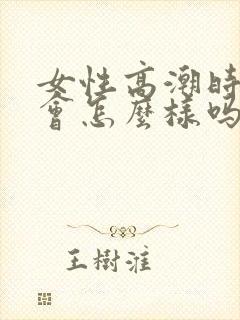 女性高潮時
會怎麼樣吗
王樹淮